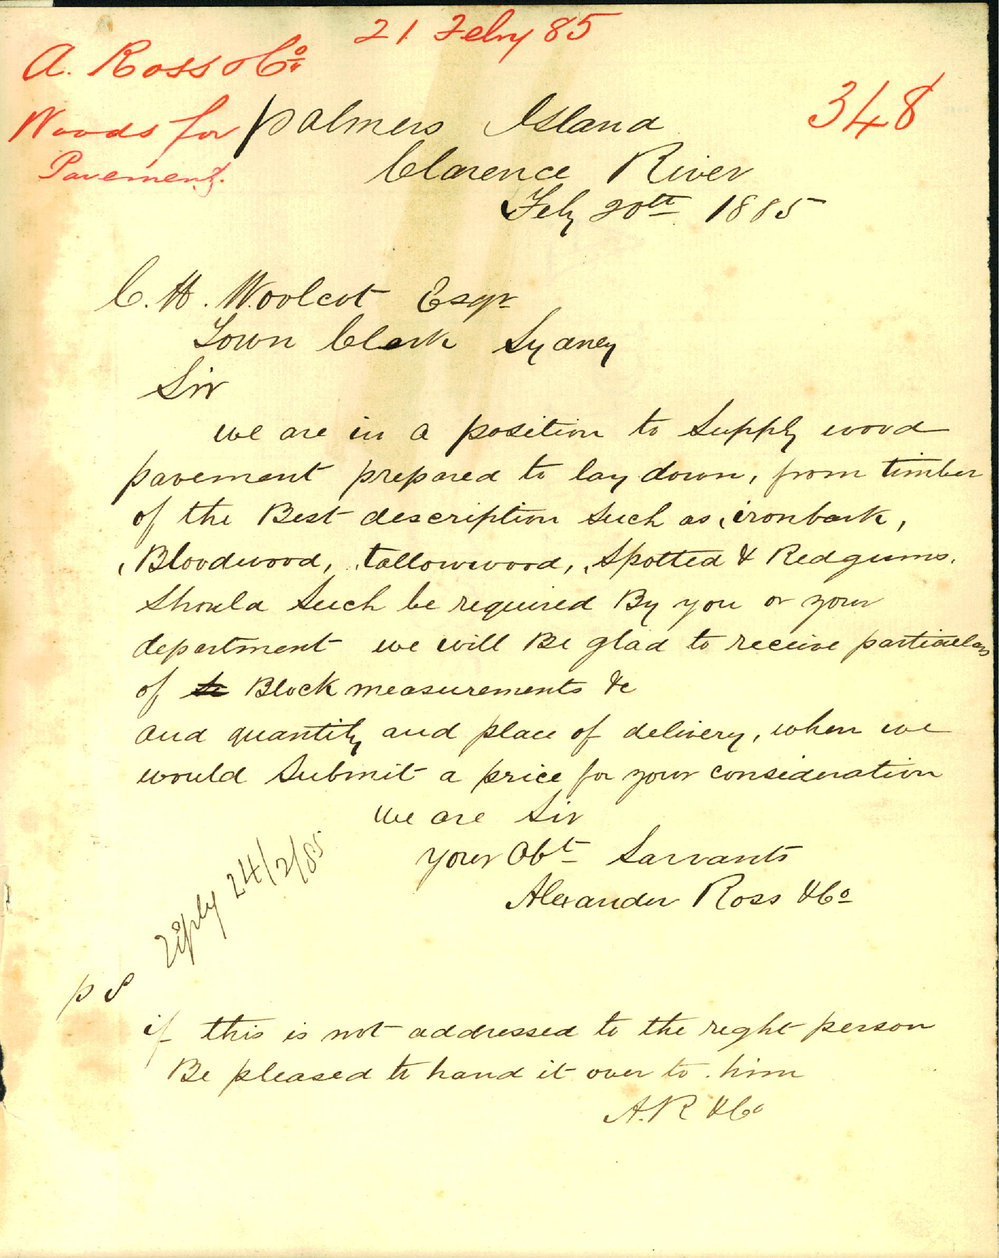 21 Feby 85
A. Ross & Co.
348
Woods for
Pavement.
Palmers Island
Clarence River
Feby 20th 1885
C. H. Woolcot Esqr
Town Clerk Sydney
Sir
we are in a position to Supply wood
pavement prepared to lay down, from timber
of the Best description Such as, ironbark,
Bloodwood, tallowwood, Spotted & Redgums.
Should Such be required By you or your
department we will Be glad to receive particulars
of Block measurements &c
and quantity and place of delivery, when we
would Submit a price for your consideration
we are Sir
your Obt Sarvants
Alexander Ross & Co
Reply 24/2/85
P S
if this is not addressed to the right person
Be pleased to hand it over to him
A. R & Co